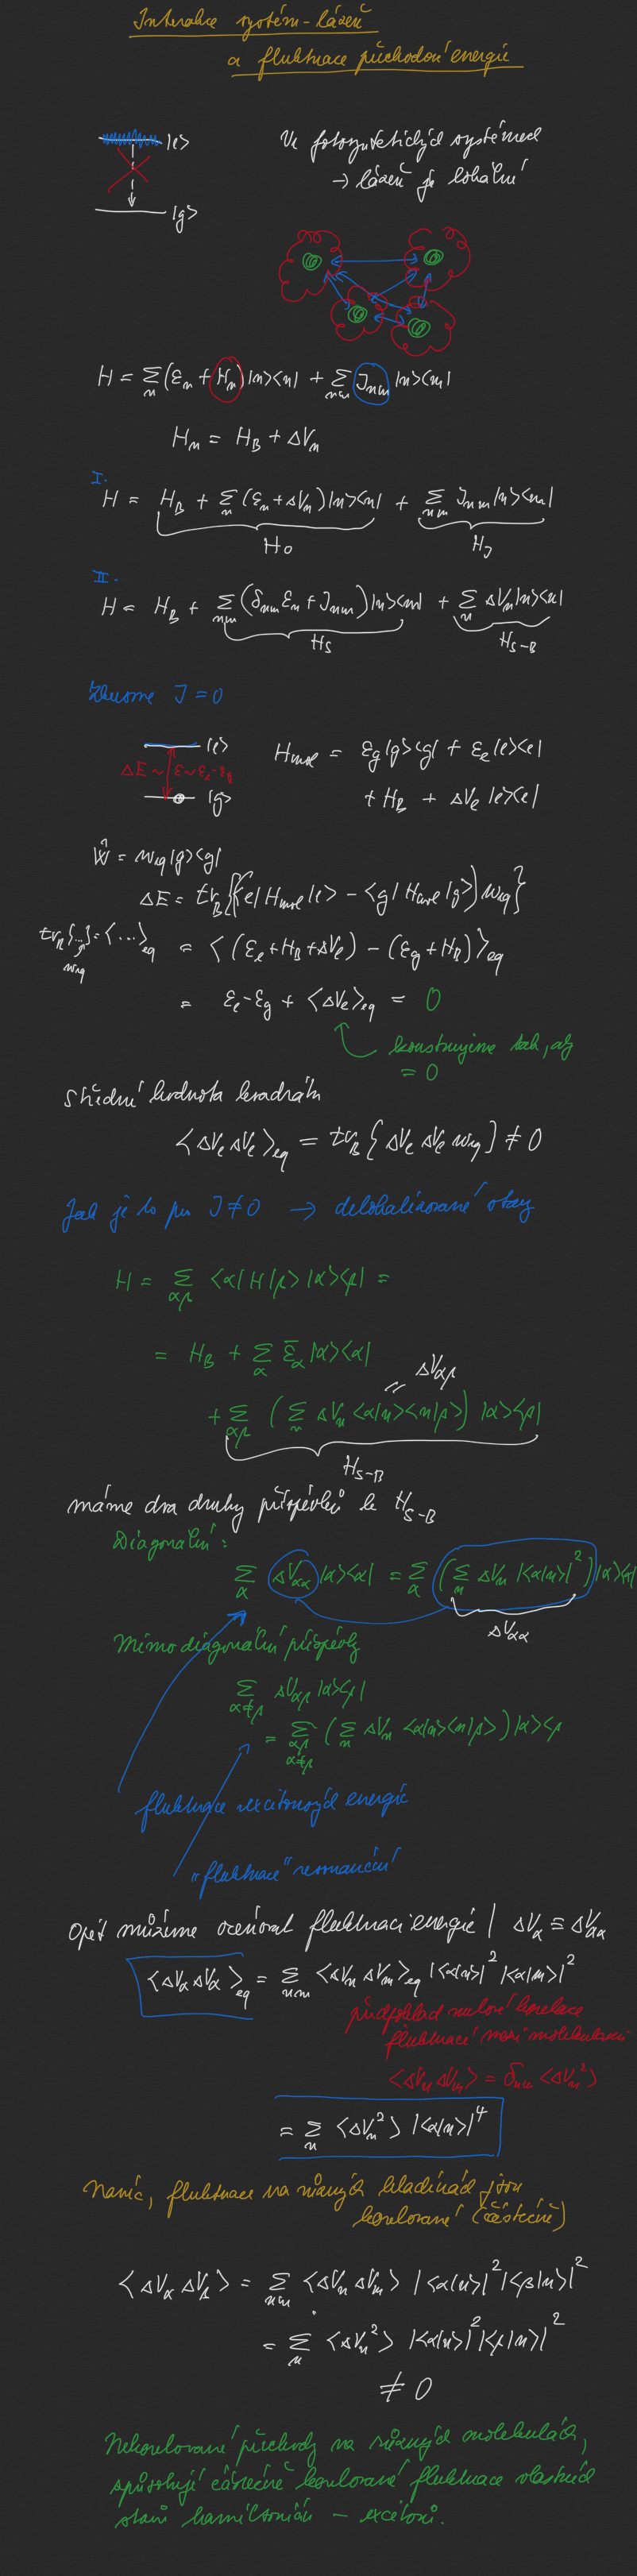 Interakce systém-lázeň
a fluktuace přechodové energie
|e>
|g>
Ve fotosyntetických systémech
→ lázeň je lokální
H = Σ_n (ε_n + H_n) |n><n| + Σ_nm J_nm |n><m|
H_n = H_B + ΔV_n
I.
H = H_B + Σ_n (ε_n + ΔV_n) |n><n| + Σ_nm J_nm |n><m|
H_0
H_J
II.
H = H_B + Σ_nm (δ_nm ε_n + J_nm) |n><m| + Σ_n ΔV_n |n><n|
H_S
H_S-B
Zkusme J = 0
|e>
ΔE ~ ε ~ ε_e - ε_g
|g>
H_mol = ε_g |g><g| + ε_e |e><e|
+ H_B + ΔV_e |e><e|
Ŵ = w_eq |g><g|
ΔE = tr_B {(<e| H_mol |e> - <g| H_mol |g>) w_eq}
tr_B{... w_eq} = <...>_eq
= <(ε_e + H_B + ΔV_e) - (ε_g + H_B)>_eq
= ε_e - ε_g + <ΔV_e>_eq = 0
konstruujeme tak, aby
= 0
Střední hodnota kvadrátu
<ΔV_e ΔV_e>_eq = tr_B {ΔV_e ΔV_e w_eq} ≠ 0
Jak je to pro J ≠ 0 → delokalizované stavy
H = Σ_αβ <α|H|β> |α><β| =
= H_B + Σ_α ε̄_α |α><α|
= ΔV_αβ
+ Σ_αβ (Σ_n ΔV_n <α|n><n|β>) |α><β|
H_S-B
máme dva druhy příspěvků k H_S-B
Diagonální:
Σ_α ΔV_αα |α><α| = Σ_α (Σ_n ΔV_n |<α|n>|²) |α><α|
ΔV_αα
Mimodiagonální příspěvky
Σ_α≠β ΔV_αβ |α><β|
= Σ_αβ α≠β (Σ_n ΔV_n <α|n><n|β>) |α><β
fluktuace excitonových energií
"fluktuace" resonanční
Opět můžeme fluktuaci energie | ΔV_α ≡ ΔV_αα
<ΔV_α ΔV_α>_eq = Σ_nm <ΔV_n ΔV_m>_eq |<α|n>|² |<α|m>|²
předpoklad nulové korelace
fluktuací mezi molekulami
<ΔV_n ΔV_m> = δ_nm <ΔV_n²>
= Σ_n <ΔV_n²> |<α|n>|⁴
Navíc, fluktuace na různých hladinách jsou
korelované (částečně)
<ΔV_α ΔV_β> = Σ_nm <ΔV_n ΔV_m> |<α|n>|² |<β|n>|²
= Σ_n <ΔV_n²> |<α|n>|² |<β|n>|²
≠ 0
Nekorelované přechody na různých molekulách,
způsobují částečně korelované fluktuace vlastních
stavů hamiltoniánu - excitonů.